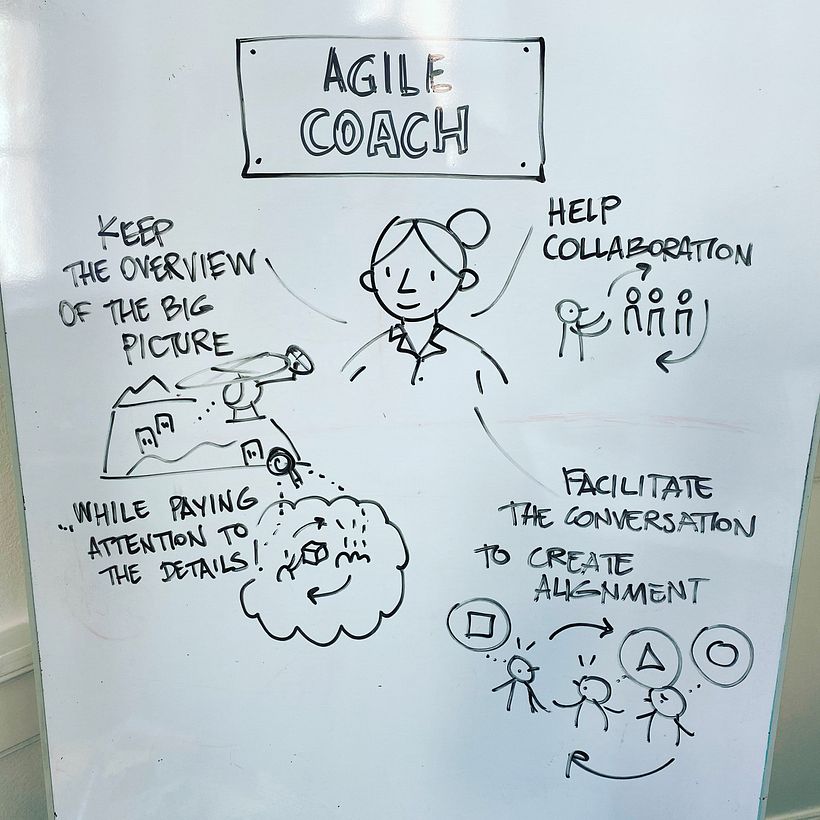 AGILE
COACH
KEEP
THE OVERVIEW
OF THE BIG
PICTURE
...WHILE PAYING
ATTENTION TO
THE DETAILS!
HELP
COLLABORATION
FACILITATE
THE CONVERSATION
TO CREATE
ALIGNMENT